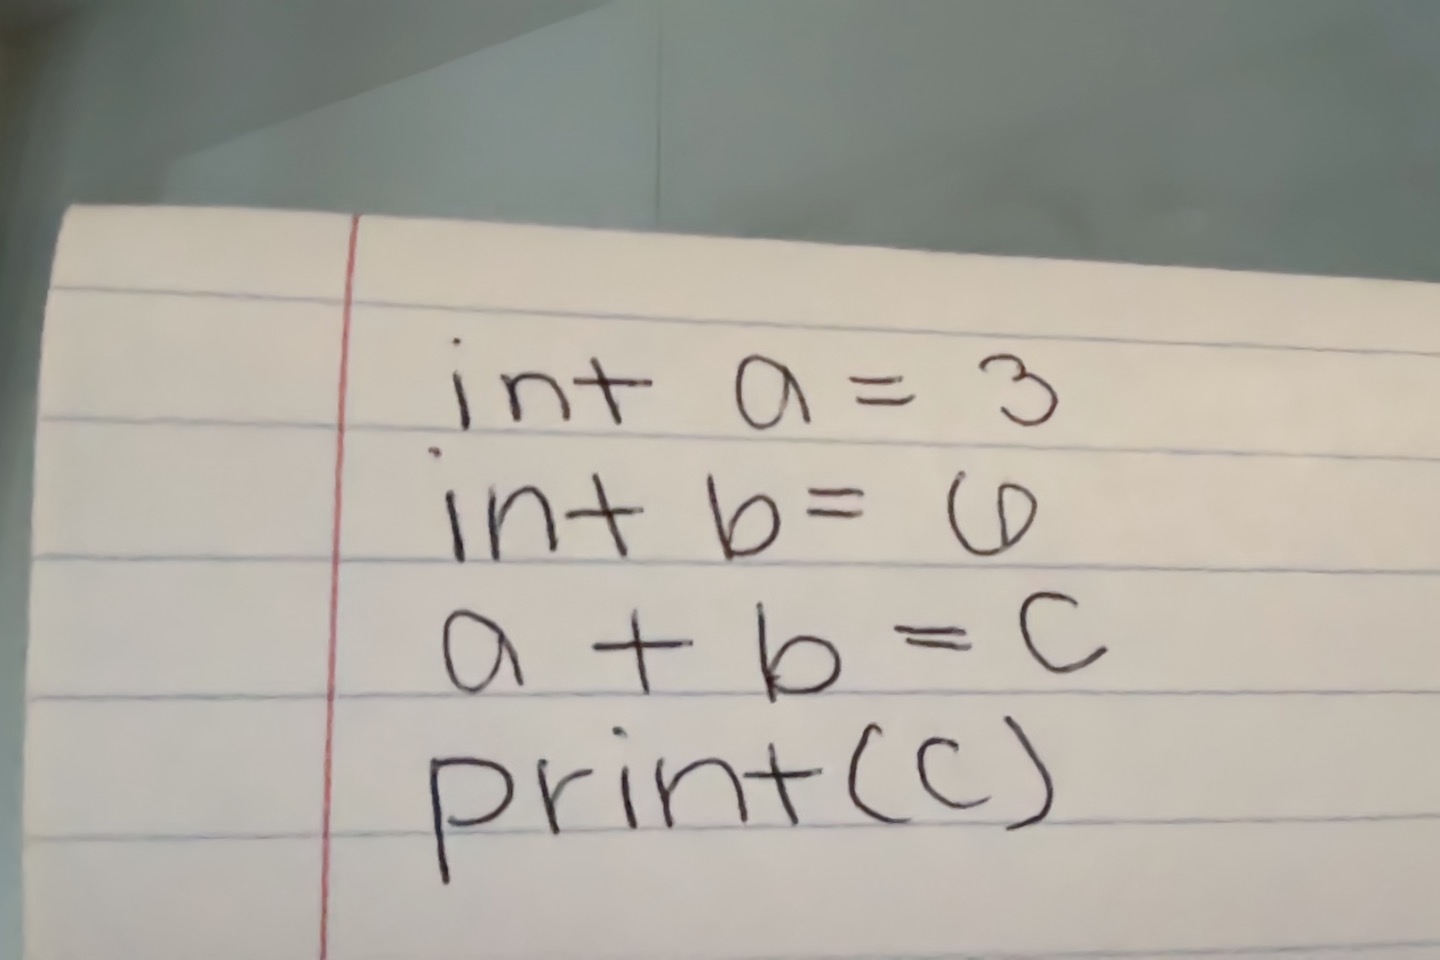 int a = 3
int b = 6
a + b = c
print(c)